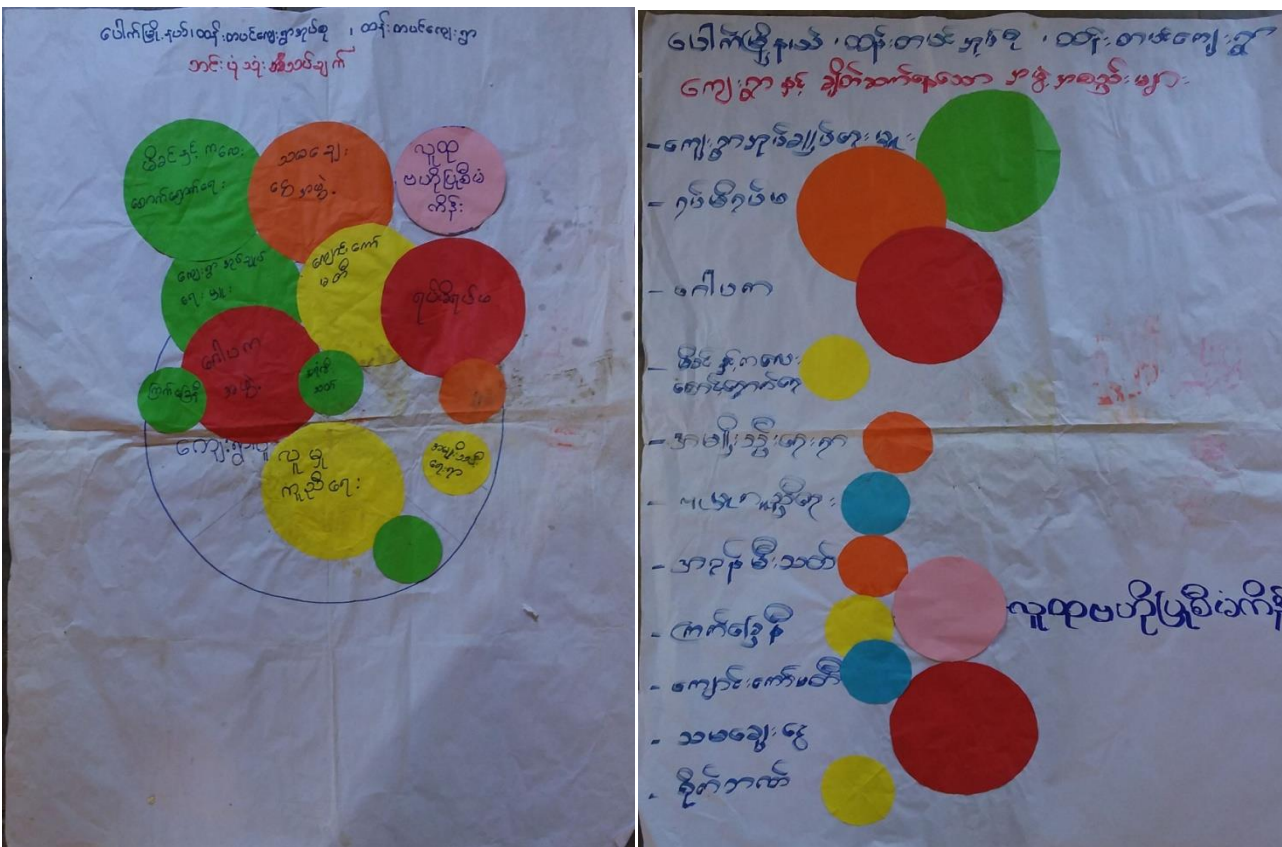 ပေါက်မြို့နယ်၊ ထန်းတပင်ကျေးရွာအုပ်စု ၊ ထန်းတပင်ကျေးရွာ
ဘင်းပုံသုံး
မိခင်နှင့် ကလေး
စောင့်ရှောက်ရေး
သမချေး
ငွေအဖွဲ့
လူထု
ဗဟိုပြုစီမံ
ကိန်း
ကျေးရွာအုပ်ချုပ်
ရေးမှူး
ကျောင်းကော်
မတီ
ရပ်မိရပ်ဖ
ဂေါပက
အဖွဲ့
ကြက်ခြေနီ
ကျေးရွာ
လူမှု
ကူညီရေး
အမျိုးသမီး
ရေးရာ
ပေါက်မြို့နယ် ၊ ထန်းတပင်အုပ်စု ၊ ထန်းတပင်ကျေးရွာ
ကျေးရွာနှင့် ချိတ်ဆက်နေသော အဖွဲ့အစည်းများ
- ကျေးရွာအုပ်ချုပ်ရေးမှူး
- ရပ်မိရပ်ဖ
- ဂေါပက
- မိခင်နှင့်ကလေး
စောင့်ရှောက်ရေး
- အမျိုးသမီးရေးရာ
- အရန်မီးသတ်
- ကြက်ခြေနီ
လူထုဗဟိုပြုစီမံကိန်း
- ကျောင်းကော်မတီ
- သမချေးငွေ
- စိုက်ဘဏ်